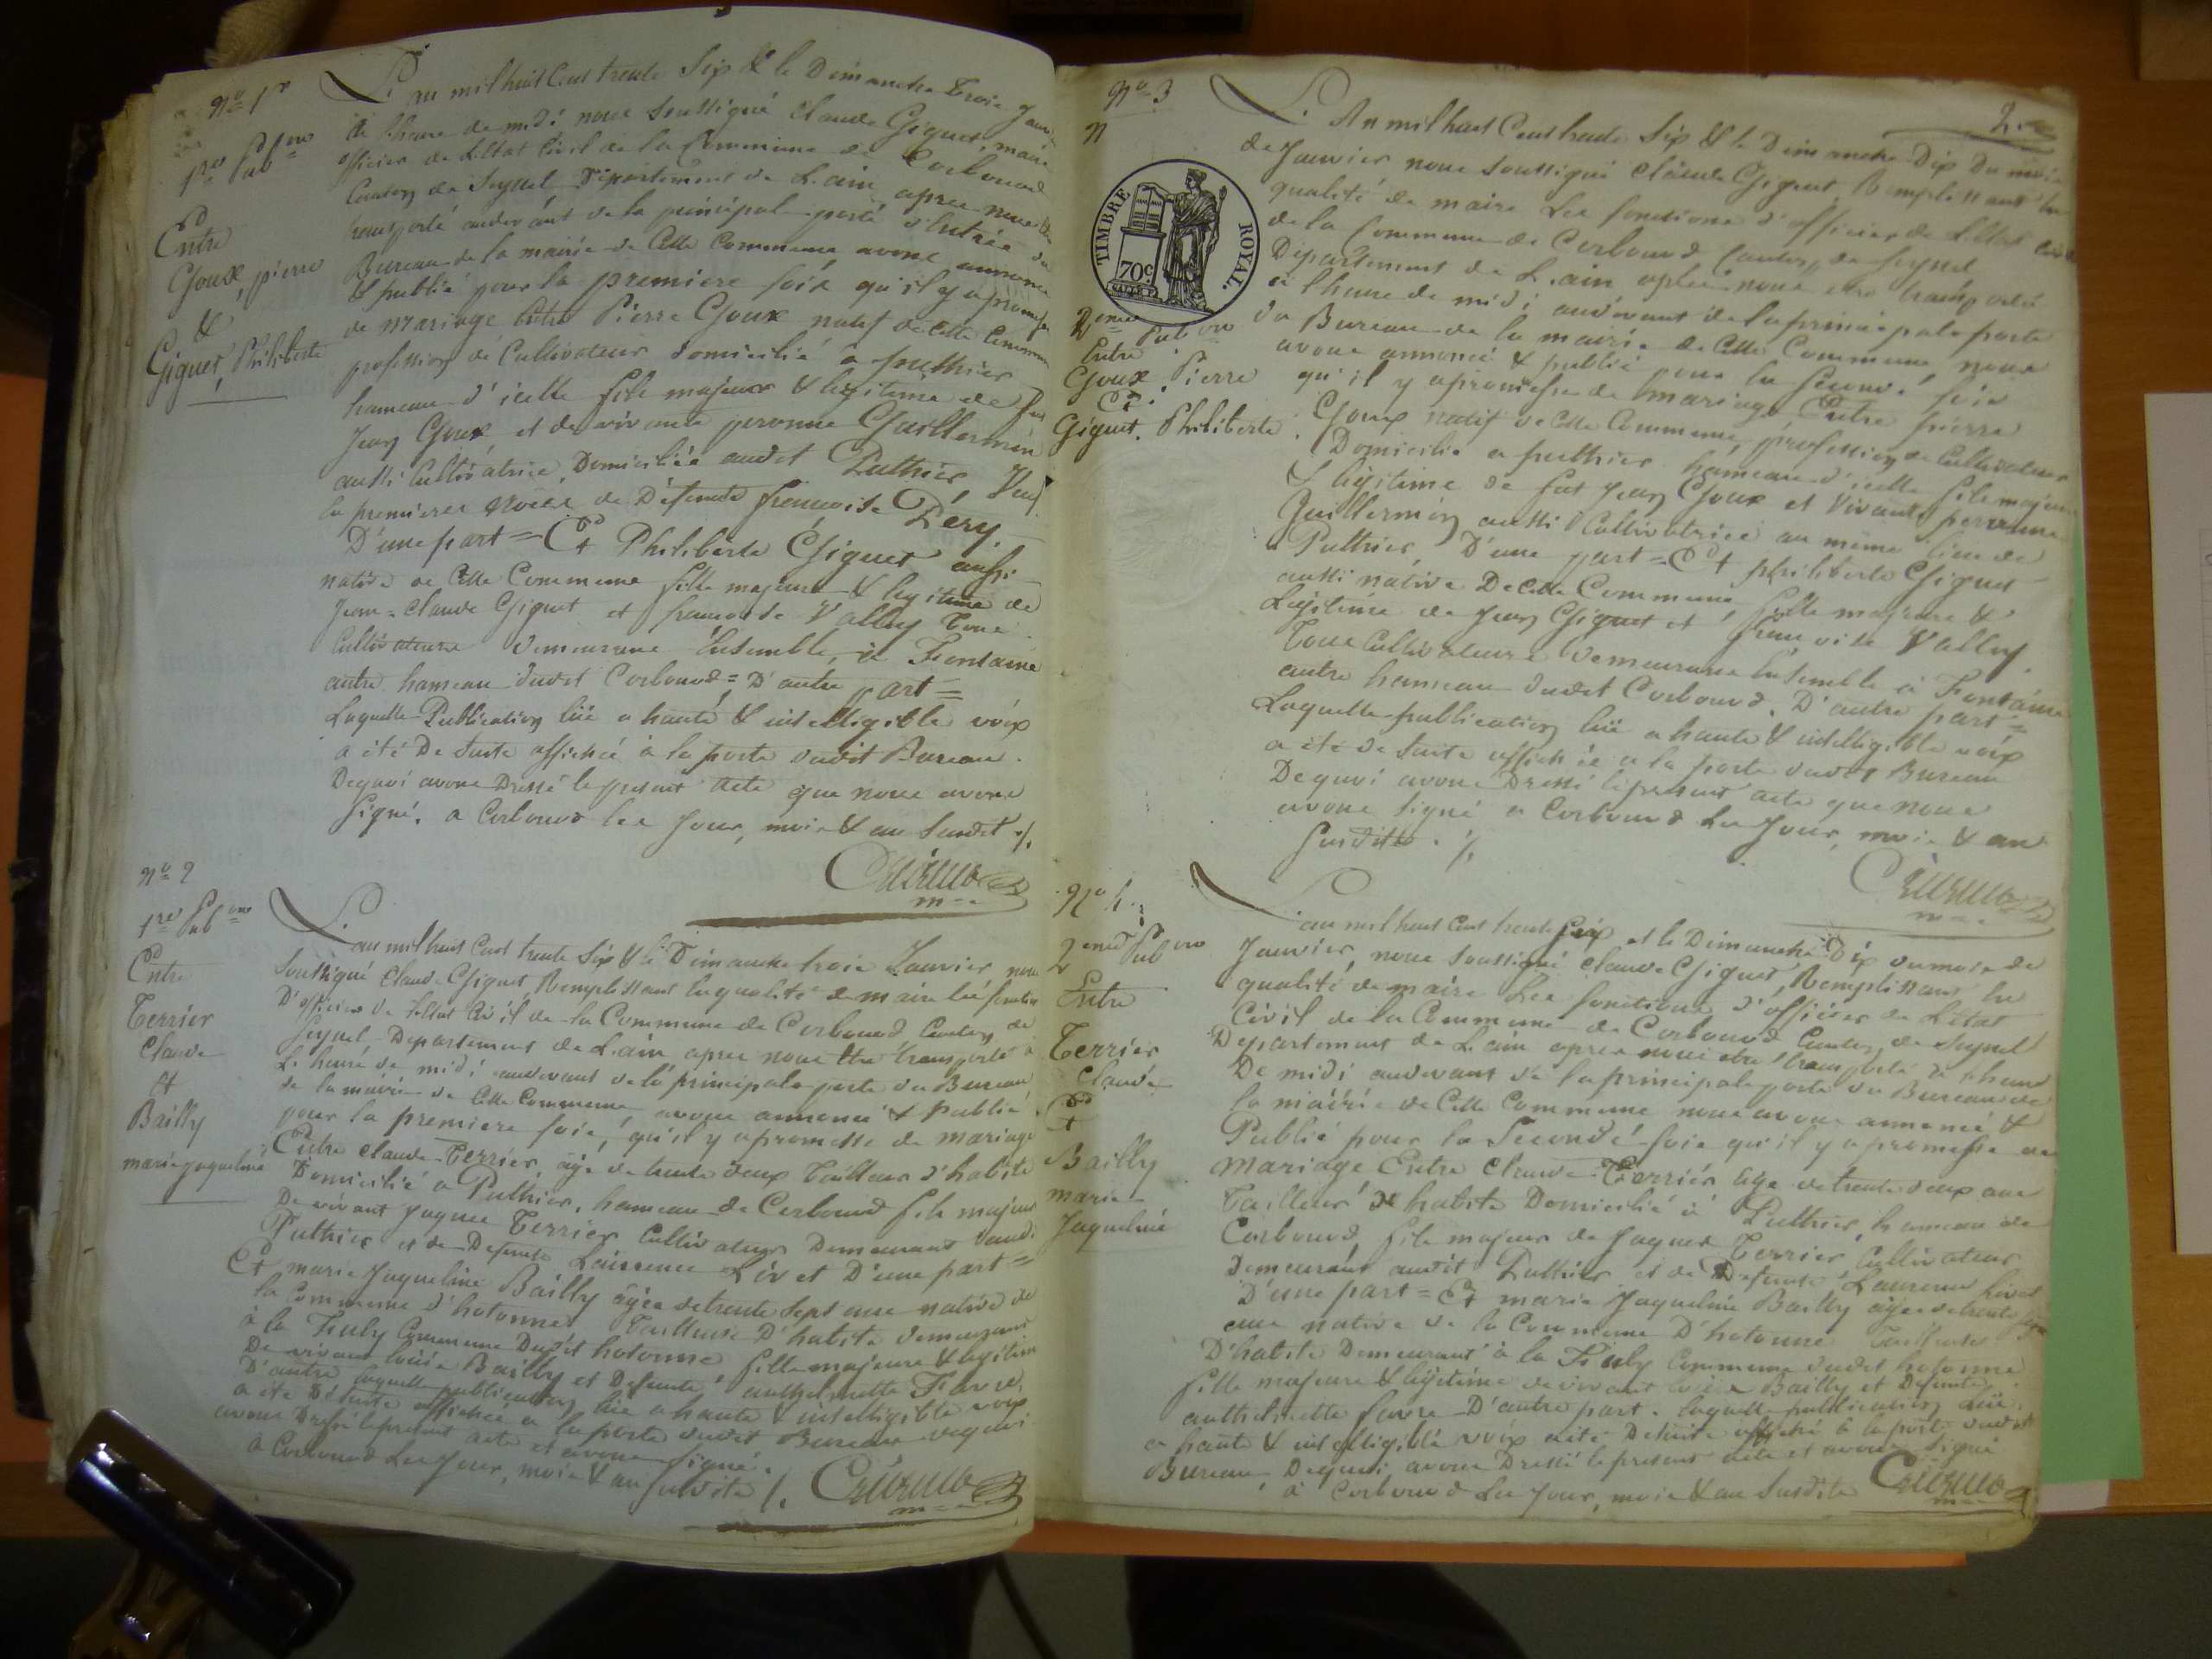 No 1r
1res Pubons
Entre
Goux, pierre
&
Giguet, Philiberte
L'an mil huit Cent trente Six & le Dimanche trois Janv
à l'heure de midi nous Soussigné Claude Giguet, maire
officier de L'Etat Civil de la Commune de Corbonod
Canton de Seyssel Département de L'ain apres nous être
transporté audevant de la principale porte d'Entrée du
Bureau de la mairie de Cette Commune avons annoncé
& publié pour la premiere fois qu'il y a promesse
de Mariage Entre Pierre Goux natif de Cette Commune
profession de Cultivateur domicilié à puthier
hameau d'icelle fils majeur & legitime de feu
Jean Goux, et de vivante peronne Guillermin
aussi Cultivatrice, Domiciliée audit Puthier, Veuf
la premieres Noces de Défunte francoise Déry.
D'une part = Et Philiberte Giguet aussi
native de Cette Commune fille majeure & legitime de
Jean = Claude Giguet et francoise Vallay tous
Cultivateurs demeurans Ensemble, à Fontaine
autre hameau dudit Corbonod = D'autre part =
Laquelle Publication lüe a haute & intelligible voix
a été De Suite affichée à la porte dudit Bureau.
Dequoi avons Dressé le present acte que nous avons
Signé. a Corbonod les Jour, mois & an Susdit ./.
No 2
1res Pubons
Entre
Terrier
Claude
et
Bailly
marie jaqueline
L'an mil huit Cent trente Six & le Dimanche trois Janvier nous
Soussigné Claude Giguet, Remplissant la qualité de maire les fonctions
D'officier de l'Etat Civil de la Commune de Corbonod Canton de
Seyssel Departement de L'ain apres nous être transporté à
L'heure de midi audevant de la principale porte du Bureau
de la mairie de Cette Commune avons annoncé & publié
pour la premiere fois, qu'il y a promesse de mariage
Entre Claude Terrier, âgé de trente deux tailleur d'habits
Domicilié a Puthier, hameau de Corbonod fils majeur
De vivant Jaques Terrier Cultivateur Demeurant audit
Puthier et de Defunte Laurence Livet D'une part =
Et marie Jaqueline Bailly âgée de trente Sept ans native de
la Commune d'hotonnes tailleuse D'habits demeurant
à la Fruly Commune Dudit hotonne, fille majeure & legitime
De vivant louis Bailly et Defunte anthelmette Favre,
D'autre laquelle publication lüe a haute & intelligible voix
a été De Suite affichée a la porte dudit Bureau dequoi
avons Dressé le present acte et avons Signé.
à Corbonod Les Jour, mois & an Susdits ./.
No 3
2.
TIMBRE ROYAL.
70c
2emes Pubons
Entre
Goux. Pierre
Et
Giguet. Philiberte
L'An mil huit Cent trente Six & le Dimanche Dix Du mois
de Janvier nous Soussigné Claude Giguet, Remplissant la
qualité de maire Les fonctions d'officier de L'Etat Civil
de la Commune de Corbonod Canton de Seyssel
Département de L'ain après nous être transporté
à l'heure de midi audevant de la principale porte
du Bureau de la mairie de Cette Commune, nous
avons annoncé & publié pour la Seconde fois
qu'il y a promesse de mariage Entre pierre
Goux natif de Cette Commune, profession de Cultivateur
Domicilié a puthier hameau d'icelle fils majeur
& légitime de feu Jean Goux et Vivante peronne
Guillermin aussi Cultivatrice au même lieu de
Puthier, D'une part = Et philiberte Giguet
aussi native De Cette Commune, fille majeure &
Légitime de Jean Giguet et francoise Valley.
Tous Cultivateurs demeurans Ensemble à Fontaine
autre hameau dudit Corbonod. D'autre part =
Laquelle publication lüe a haute & intelligible voix
a été de Suite affichée a la porte dudit Bureau
Dequoi avons Dressé le present acte que nous
avons Signé a Corbonod Les Jour, mois & an
Susdits. ./.
No 4.
2emes Pubons
Entre
Terrier
Claude
Et
Bailly
marie
Jaqueline
L'an mil huit Cent trente Six et le Dimanche Dix du mois de
Janvier, nous Soussigné Claude Giguet, Remplissant la
qualité de maire Les fonctions d'officier de L'Etat
Civil de la Commune de Corbonod Canton de Seyssel
Departement de L'ain apres nous être transporté à l'heure
De midi audevant de la principale porte du Bureau de
la mairie de Cette Commune nous avons annoncé &
Publié pour la Seconde fois qu'il y a promesse de
Mariage Entre Claude Terrier âgé de trente deux ans
tailleur d'habits Domicilié à Puthier, hameau de
Corbonod, fils majeur de Jaques Terrier, Cultivateur
Demeurant audit Puthier et de Defunte Laurence Livet
D'une part = Et marie Jaqueline Bailly âgée de trente Sept
ans native de la Commune D'hotonne tailleuse
D'habits Demeurant à la Fruly Commune dudit hotonne
fille majeure & légitime de vivant louis Bailly et Defunte
anthelmette favre D'autre part. laquelle publication lüe
a haute & intelligible voix a été De Suite affiché à la porte dudit
Bureau, Dequoi avons Dressé le present acte et avons Signé
à Corbonod Les Jour, mois & an Susdits